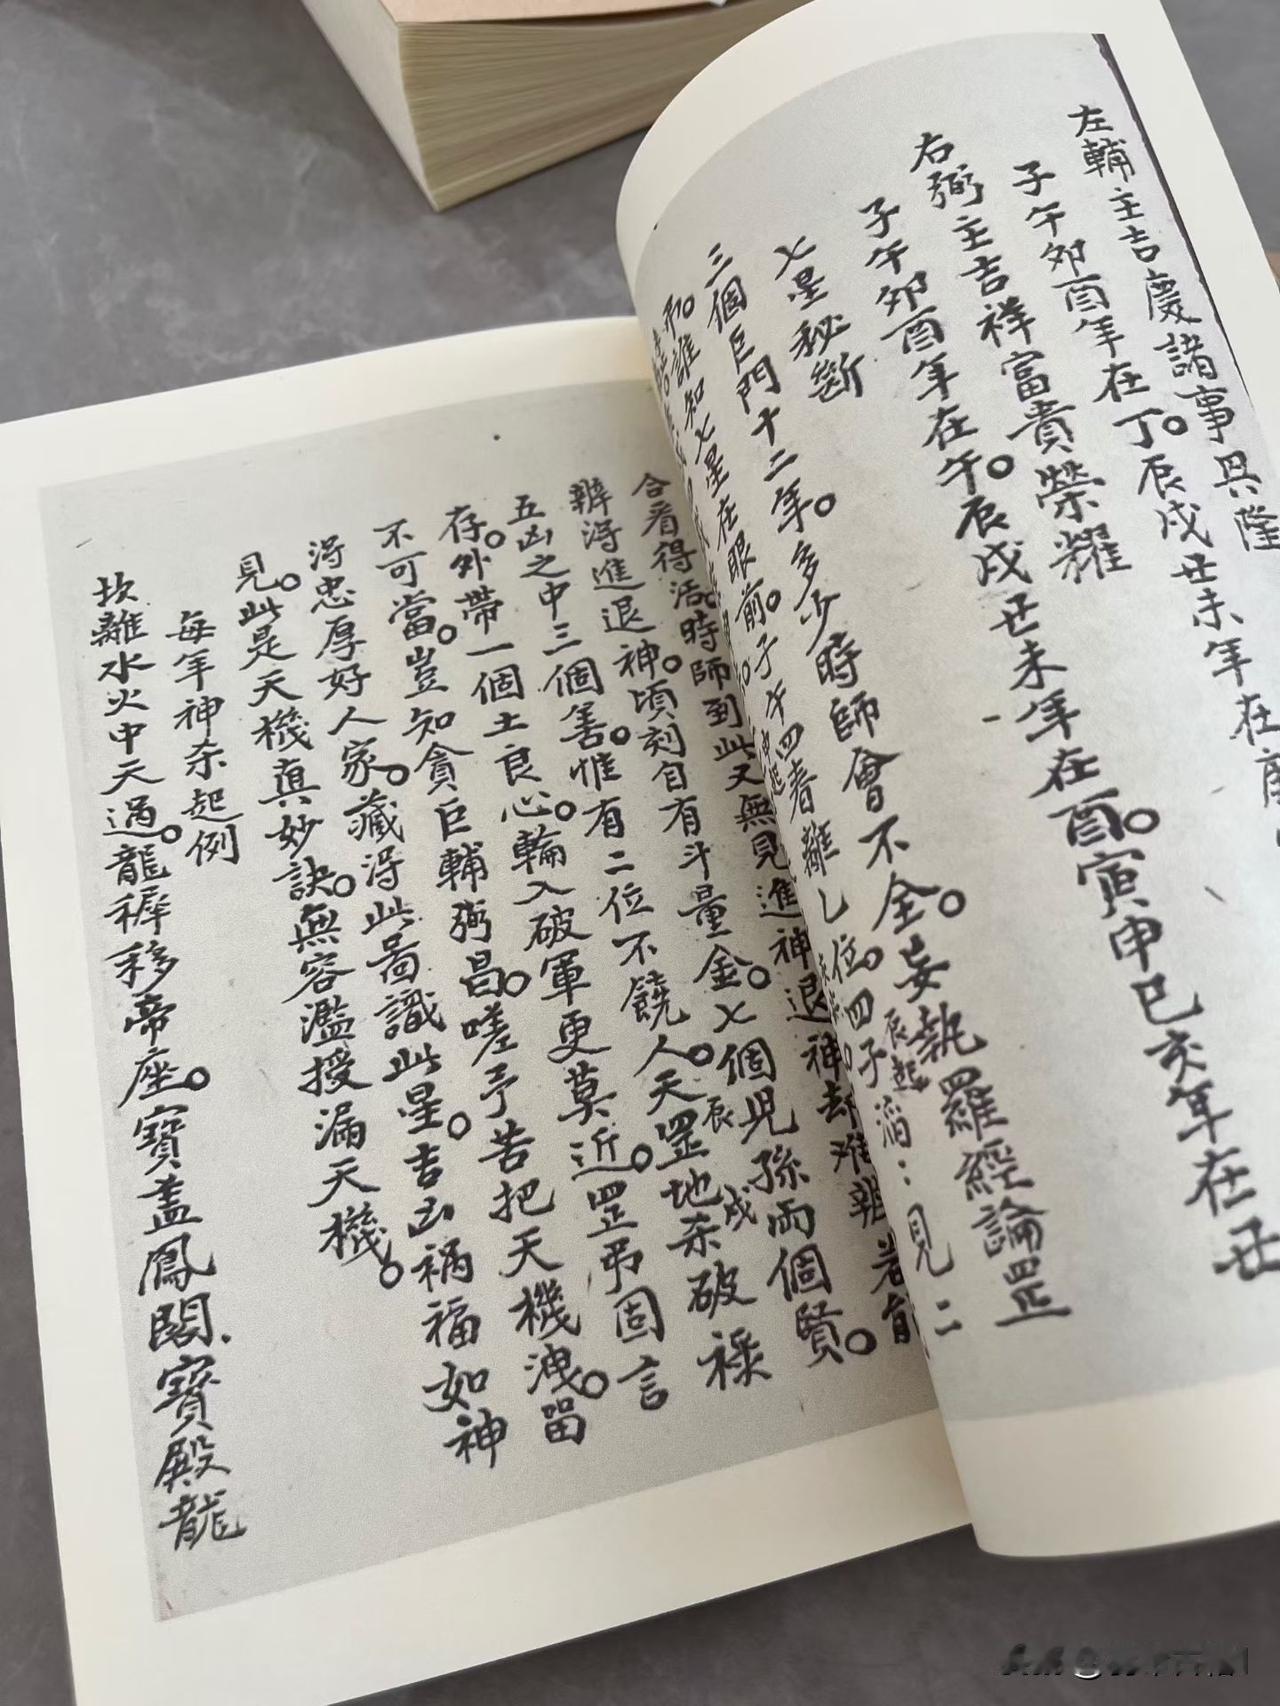 左輔主吉慶諸事興隆
子午卯酉年在丁。辰戌丑未年在庚
右弼主吉祥富貴榮耀
子午卯酉年在午。辰戌丑未年在酉。寅申巳亥年在丑
七星秘斷
三個巨門十二年。多少時師會不全。妄執羅經論罡
形。誰知七星在眼前。子午四着離乚位。四子辰起滔:見二
合看得活。時師到此又無見進神退神却难辨若有
辦淂進退神。頃刻自有斗量金。七個児孫両個賢。
五凶之中三個善。惟有二位不饒人。天罡辰地杀戌破祿
存。外帶一個土良心。輪入破軍更莫近。罡帀固言
不可當。豈知貪巨輔弼昌。嗟予苦把天機洩。畄
淂忠厚好人家。藏淂此啚識此星。吉凶禍福如神
見。此是天機真妙訣。無容濫授漏天機。
每年神杀起例
坎離水火中天過。龍樨移帝座。寶盖鳳閣寶殿龍